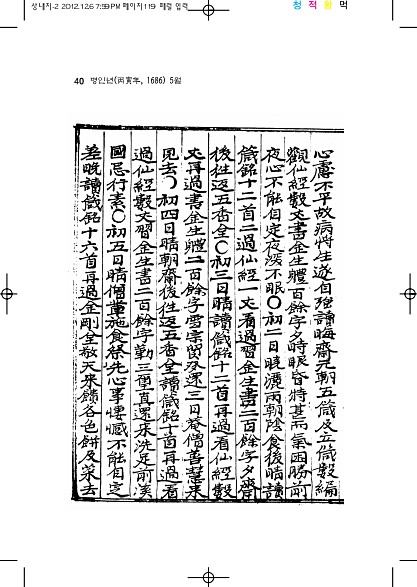 상내지-2 2012.12.6 7:59 PM 페이지119 페평 입력
청 적 황 먹
40 병인년(丙寅年, 1686) 5월
心慮不平故病將生遂自強讀晦齋元朝五箴及立箴數編
觀仙經數文書金生體百餘字久時眼昏特甚而氣困勝前
夜心不能自定夜深不眠〇初二日曉灑雨朝陰食後晴讀
箴銘十二首二過仙經一文看過習金生書二百餘字夕齋
後往返五香全〇初三日晴讀箴銘十二首再過看仙經數
文再過書金生體二百餘字雪宗留及還三日菴僧善慧來
見去〇初四日晴朝齋後往返五香全讀箴銘十首再過看
過仙經數文習金生書二百餘字勤三首眞還床洗足前溪
國忌行素〇初五日晴僧輩施食祭先心事悽慽不能自定
差晚讀箴銘十六首再過金剛全敬天來饋各色餠及菜去